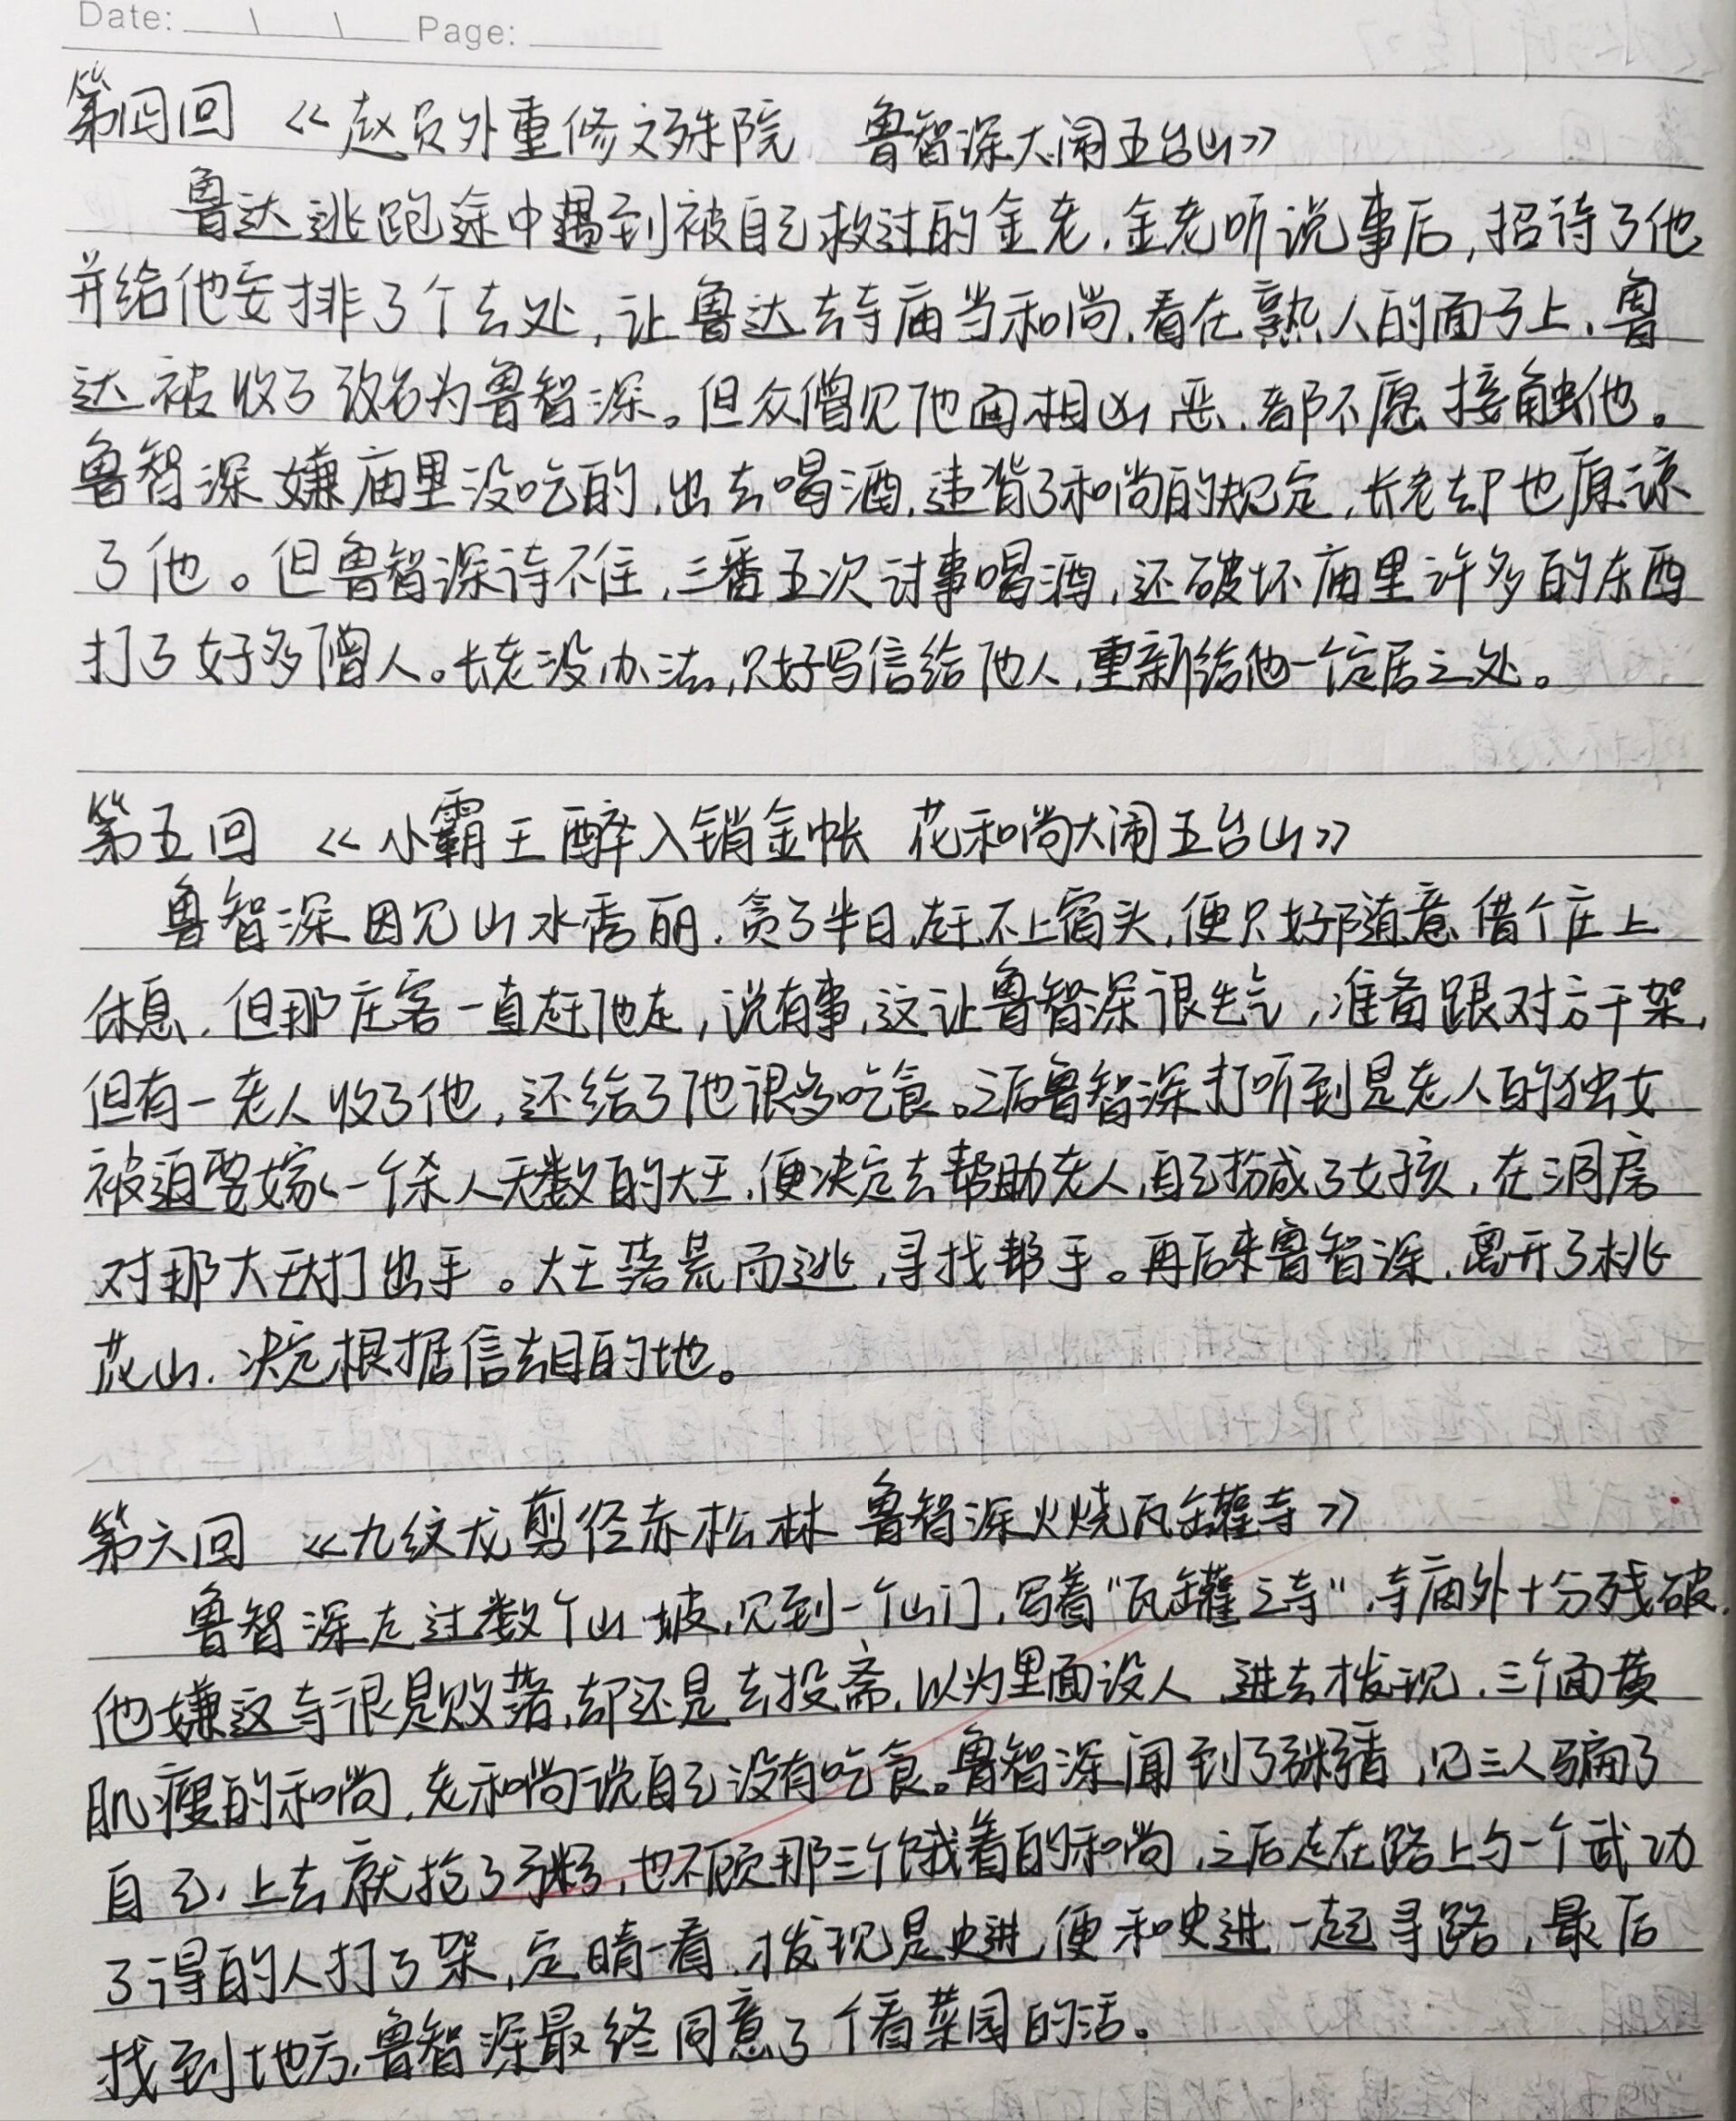 Date: \ \ Page:
第四回 《赵员外重修文殊院 鲁智深大闹五台山》
鲁达逃跑途中遇到被自己救过的金老,金老听说事后,招待了他
并给他安排了个去处,让鲁达去寺庙当和尚,看在熟人的面子上,鲁
达被收了改名为鲁智深。但众僧见他面相凶恶,都不愿接触他。
鲁智深嫌庙里没吃的,出去喝酒,违背了和尚的规定,长老却也原谅
了他。但鲁智深待不住,三番五次讨事喝酒,还破坏庙里许多的东西
打了好多僧人。长老没办法,只好写信给他人,重新给他一个定居之处。
第五回 《小霸王醉入销金帐 花和尚大闹五台山》
鲁智深因见山水秀丽,贪了半日,赶不上宿头,便只好随意借个庄上
休息,但那庄客一直赶他走,说有事,这让鲁智深很生气,准备跟对方干架,
但有一老人收了他,还给了他很多吃食。之后鲁智深打听到是老人的独女
被迫要嫁一个杀人无数的大王,便决定去帮助老人,自己扮成了女孩,在洞房
对那大王大打出手。大王落荒而逃,寻找帮手。再后来鲁智深,离开了桃
花山,决定根据信去目的地。
第六回 《九纹龙剪径赤松林 鲁智深火烧瓦罐寺》
鲁智深走过数个山坡,见到一个山门,写着"瓦罐之寺",寺庙外十分残破,
他嫌这寺很是败落,却还是去投斋,以为里面没人,进去才发现,三个面黄
肌瘦的和尚,老和尚说自己没有吃食。鲁智深闻到了粥香,见三人骗了
自己,上去就抢了粥,也不顾那三个饿着的和尚,之后走在路上与一个武功
了得的人打了架,定睛一看,才发现是史进,便和史进一起寻路,最后
找到地方,鲁智深最终同意了个看菜园的活。